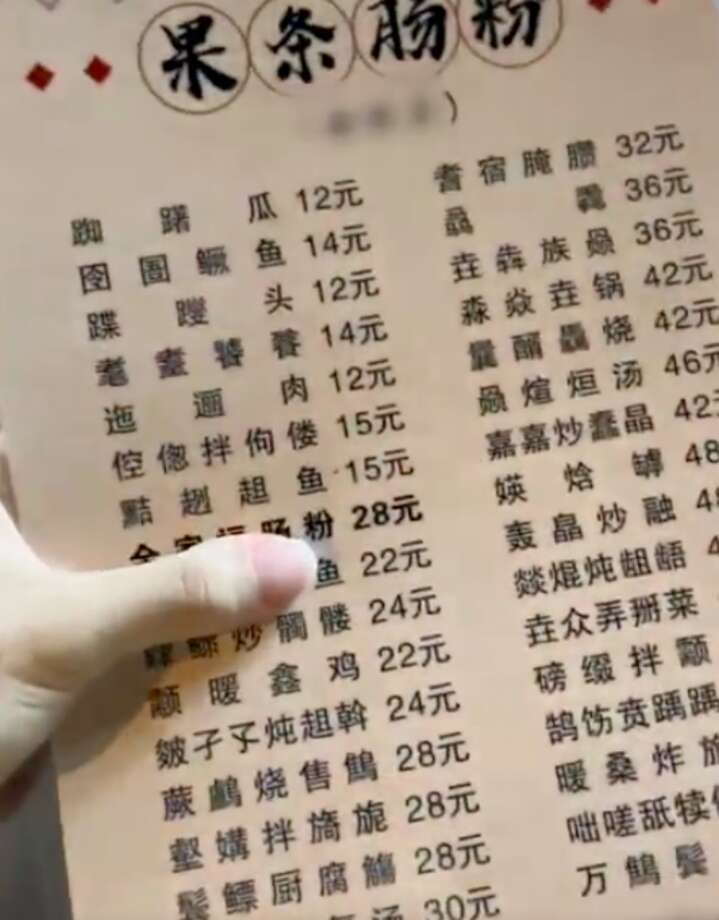 果条肠粉
踟躇瓜 12元
囹圄鳜鱼 14元
蹀蹬头 12元
耄耋饕餮 14元
迤逦肉 12元
倥偬拌佝偻 15元
黠趔趄鱼 15元
全家福肠粉 28元
鱼 22元
炒髑髅 24元
颟暖鑫鸡 22元
皴孑孓炖趄斡 24元
蕨鸬烧售鸪 28元
壑媾拌旖旎 28元
鬓鳔厨腐觞 28元
汤 30元
耆宿腌臜 32元
骉毳 36元
垚犇族赑 36元
淼焱垚锅 42元
轟烧 42元
赑煊烜汤 46元
嘉嘉炒蠢晶 42元
媖焓罅 48
轰晶炒融 48
燚焜炖龃龉 4
垚众弄掰菜
磅缀拌颟
鹄饬贲踽踽
暖桑炸旅
咄嗟舐犊
万鸪鬓